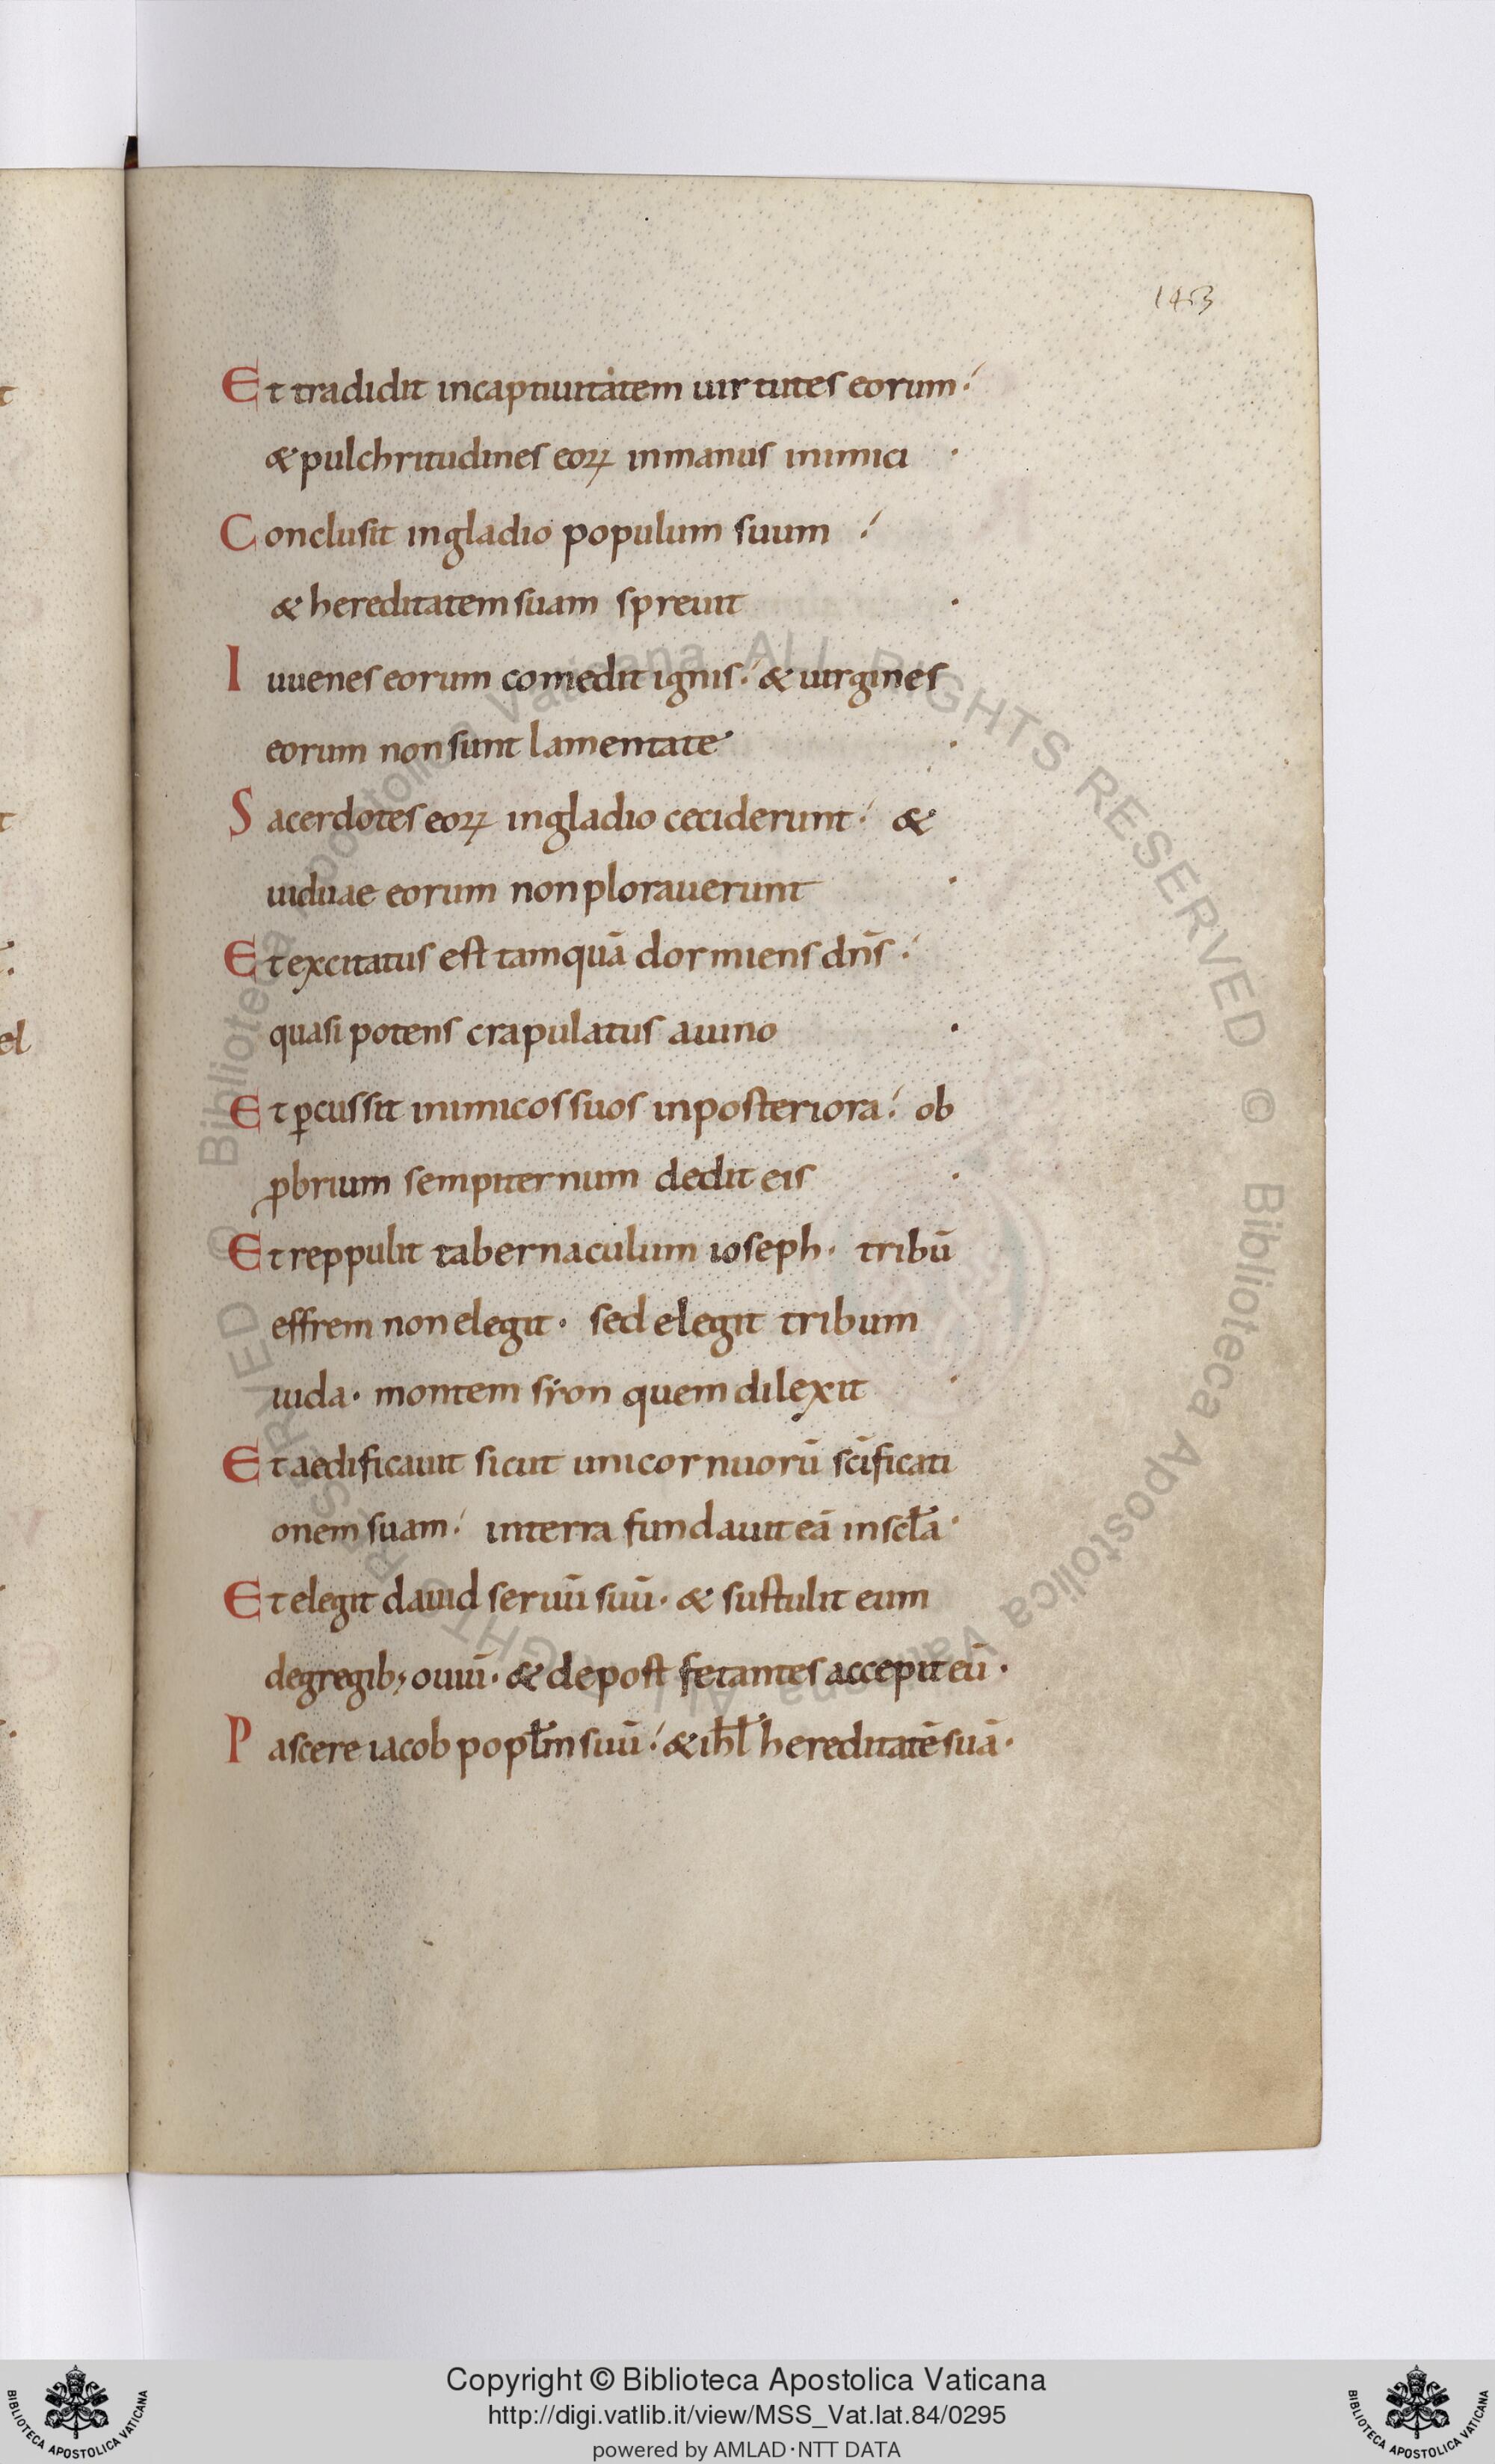 1453
Et tradidit incaptiuitatem uirtutes eorum·
&pulchritudines eoꝝ inmanus inimici ·
Conclusit ingladio populum suum ·
& hereditatem suam spreuit ·
Iuuenes eorum comedit ignis· & uirgines
eorum non sunt lamentate ·
Sacerdotes eoꝝ ingladio ceciderunt· &
uiduae eorum non plorauerunt ·
Et excitatus est tamquā dormiens dn̄s ·
quasi potens crapulatus auino ·
Et ꝑcussit inimicos suos inposteriora· ob
ꝓbrium sempiternum dedit eis ·
Et reppulit tabernaculum ioseph· tribū
effrem non elegit· sed elegit tribum
iuda· montem syon quem dilexit ·
Et aedificauit sicut unicornuorū sc̄ificati
onem suam· interra fundauit eā insc̄la ·
Et elegit dauid seruū suū· & sustulit eum
degregib; ouiū· & depost fetantes accepit eū ·
Pascere iacob popłm suū· & ihł hereditatē suā ·
t
t
el
Biblioteca Apostolica Vaticana ALL RIGHTS RESERVED © Biblioteca Apostolica Vaticana ALL RIGHTS RESERVED ©
Copyright © Biblioteca Apostolica Vaticana
http://digi.vatlib.it/view/MSS_Vat.lat.84/0295
powered by AMLAD·NTT DATA
BIBLIOTECA APOSTOLICA VATICANA
BIBLIOTECA APOSTOLICA VATICANA